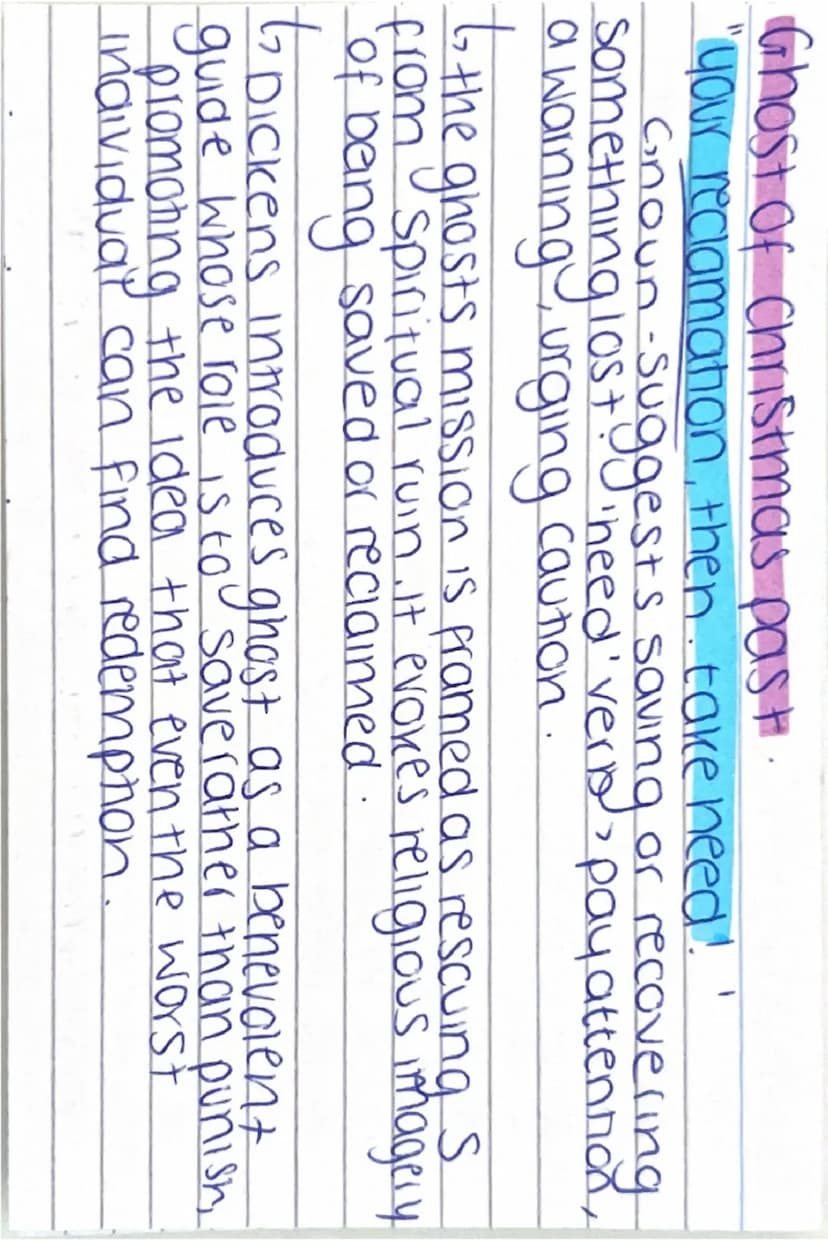 Ghost of Christmas past.
"your reclamation, then. take heed!'
↳noun - suggests saving or recovering
something lost. 'heed' verb > pay attention,
a warning, urging caution.
↳ the ghosts mission is framed as rescuing S
from spiritual ruin. it evokes religious imagery
of being saved or reclaimed.
↳ Dickens introduces ghost as a benevolent
guide whose role is to save rather than punish,
promoting the idea that even the worst
individual can find redemption.